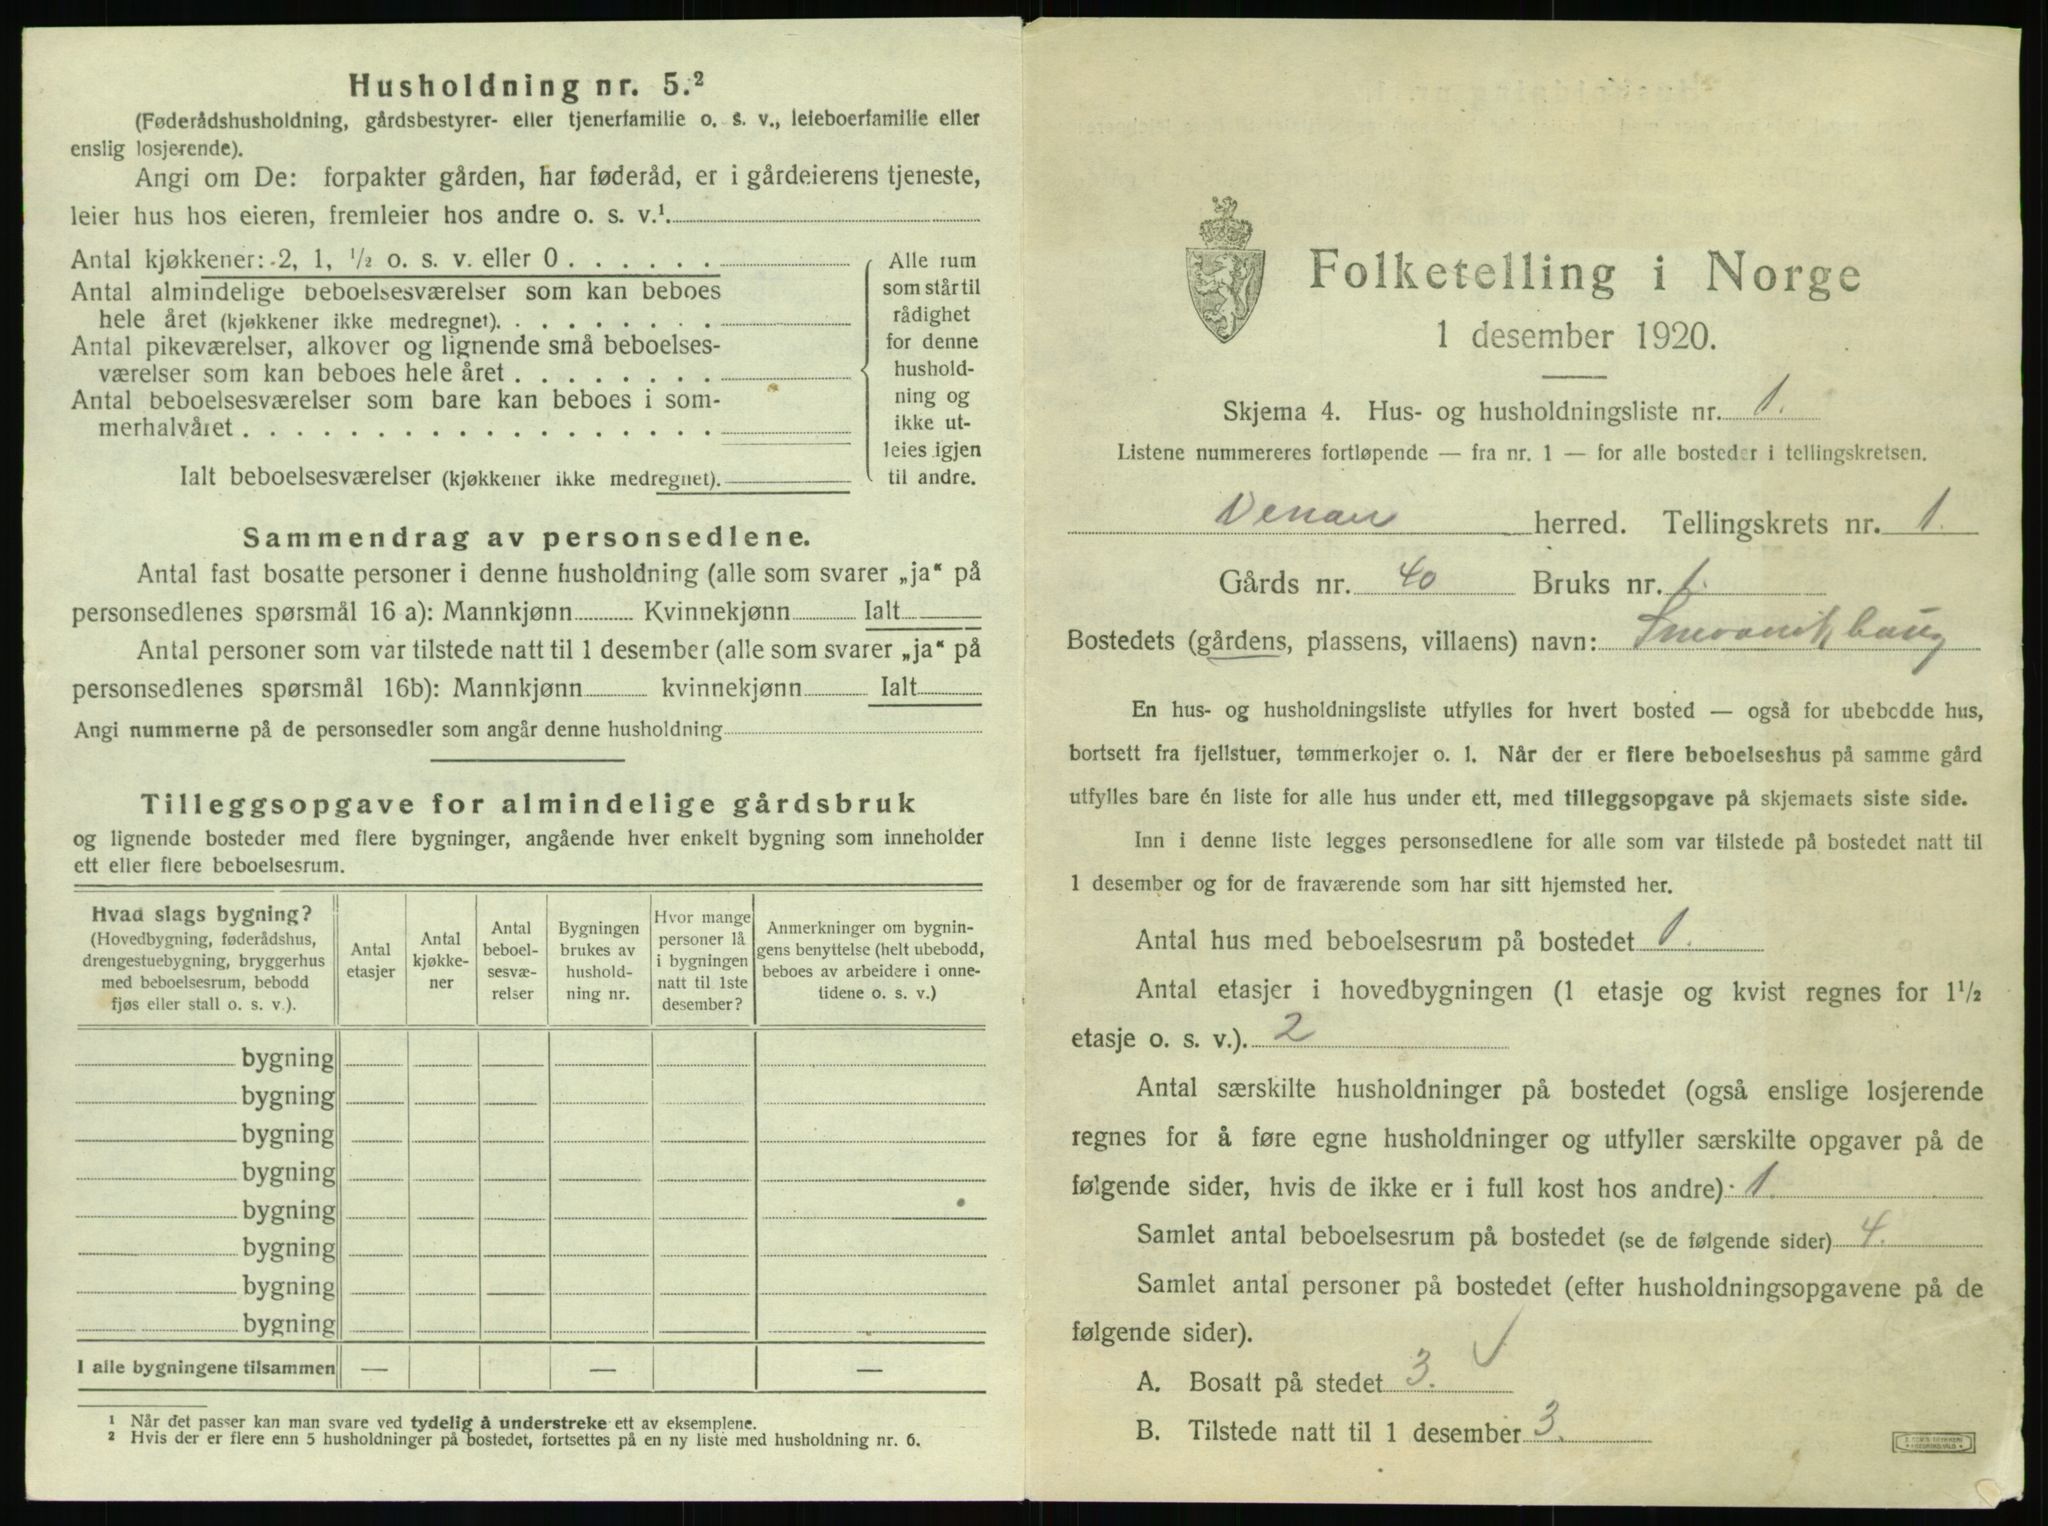 Husholdning nr. 5.²
(Føderådshusholdning, gårdsbestyrer- eller tjenerfamilie o. s. v., leieboerfamilie eller
enslig losjerende).
Angi om De: forpakter gården, har føderåd, er i gårdeierens tjeneste,
leier hus hos eieren, fremleier hos andre o. s. v.¹
Antal kjøkkener: 2, 1, ½ o. s. v. eller 0
Antal almindelige beboelsesværelser som kan beboes
hele året (kjøkkener ikke medregnet)
Antal pikeværelser, alkover og lignende små beboelses-
værelser som kan beboes hele året
Antal beboelsesværelser som bare kan beboes i som-
merhalvåret
Ialt beboelsesværelser (kjøkkener ikke medregnet)
Alle rum
som står til
rådighet
for denne
hushold-
ning og
ikke ut-
leies igjen
til andre.
Sammendrag av personsedlene.
Antal fast bosatte personer i denne husholdning (alle som svarer „ja“ på
personsedlenes spørsmål 16 a): Mannkjønn Kvinnekjønn Ialt
Antal personer som var tilstede natt til 1 desember (alle som svarer „ja“ på
personsedlenes spørsmål 16b): Mannkjønn kvinnekjønn Ialt
Angi nummerne på de personsedler som angår denne husholdning
Tilleggsopgave for almindelige gårdsbruk
og lignende bosteder med flere bygninger, angående hver enkelt bygning som inneholder
ett eller flere beboelsesrum.
Hvad slags bygning?
(Hovedbygning, føderådshus,
drengestuebygning, bryggerhus
med beboelsesrum, bebodd
fjøs eller stall o. s. v.).
Antal
etasjer
Antal
kjøkke-
ner
Antal
beboel-
sesvæ-
relser
Bygningen
brukes av
hushold-
ning nr.
Hvor mange
personer lå
i bygningen
natt til 1ste
desember?
Anmerkninger om bygnin-
gens benyttelse (helt ubebodd,
beboes av arbeidere i onne-
tidene o. s. v.)
bygning
bygning
bygning
bygning
bygning
bygning
bygning
bygning
I alle bygningene tilsammen — — —
¹ Når det passer kan man svare ved tydelig å understreke ett av eksemplene.
² Hvis der er flere enn 5 husholdninger på bostedet, fortsettes på en ny liste med husholdning nr. 6.
Folketelling i Norge
1 desember 1920.
Skjema 4. Hus- og husholdningsliste nr. 1.
Listene nummereres fortløpende — fra nr. 1 — for alle bosteder i tellingskretsen.
herred. Tellingskrets nr. 1.
Gårds nr. 40 Bruks nr. 1.
Bostedets (gårdens, plassens, villaens) navn:
En hus- og husholdningsliste utfylles for hvert bosted — også for ubebodde hus,
bortsett fra fjellstuer, tømmerkojer o. l. Når der er flere beboelseshus på samme gård
utfylles bare én liste for alle hus under ett, med tilleggsopgave på skjemaets siste side.
Inn i denne liste legges personsedlene for alle som var tilstede på bostedet natt til
1 desember og for de fraværende som har sitt hjemsted her.
Antal hus med beboelsesrum på bostedet 1.
Antal etasjer i hovedbygningen (1 etasje og kvist regnes for 1½
etasje o. s. v.). 2
Antal særskilte husholdninger på bostedet (også enslige losjerende
regnes for å føre egne husholdninger og utfyller særskilte opgaver på de
følgende sider, hvis de ikke er i full kost hos andre) 1.
Samlet antal beboelsesrum på bostedet (se de følgende sider) 4.
Samlet antal personer på bostedet (efter husholdningsopgavene på de
følgende sider).
A. Bosatt på stedet 3. ✓
B. Tilstede natt til 1 desember 3.